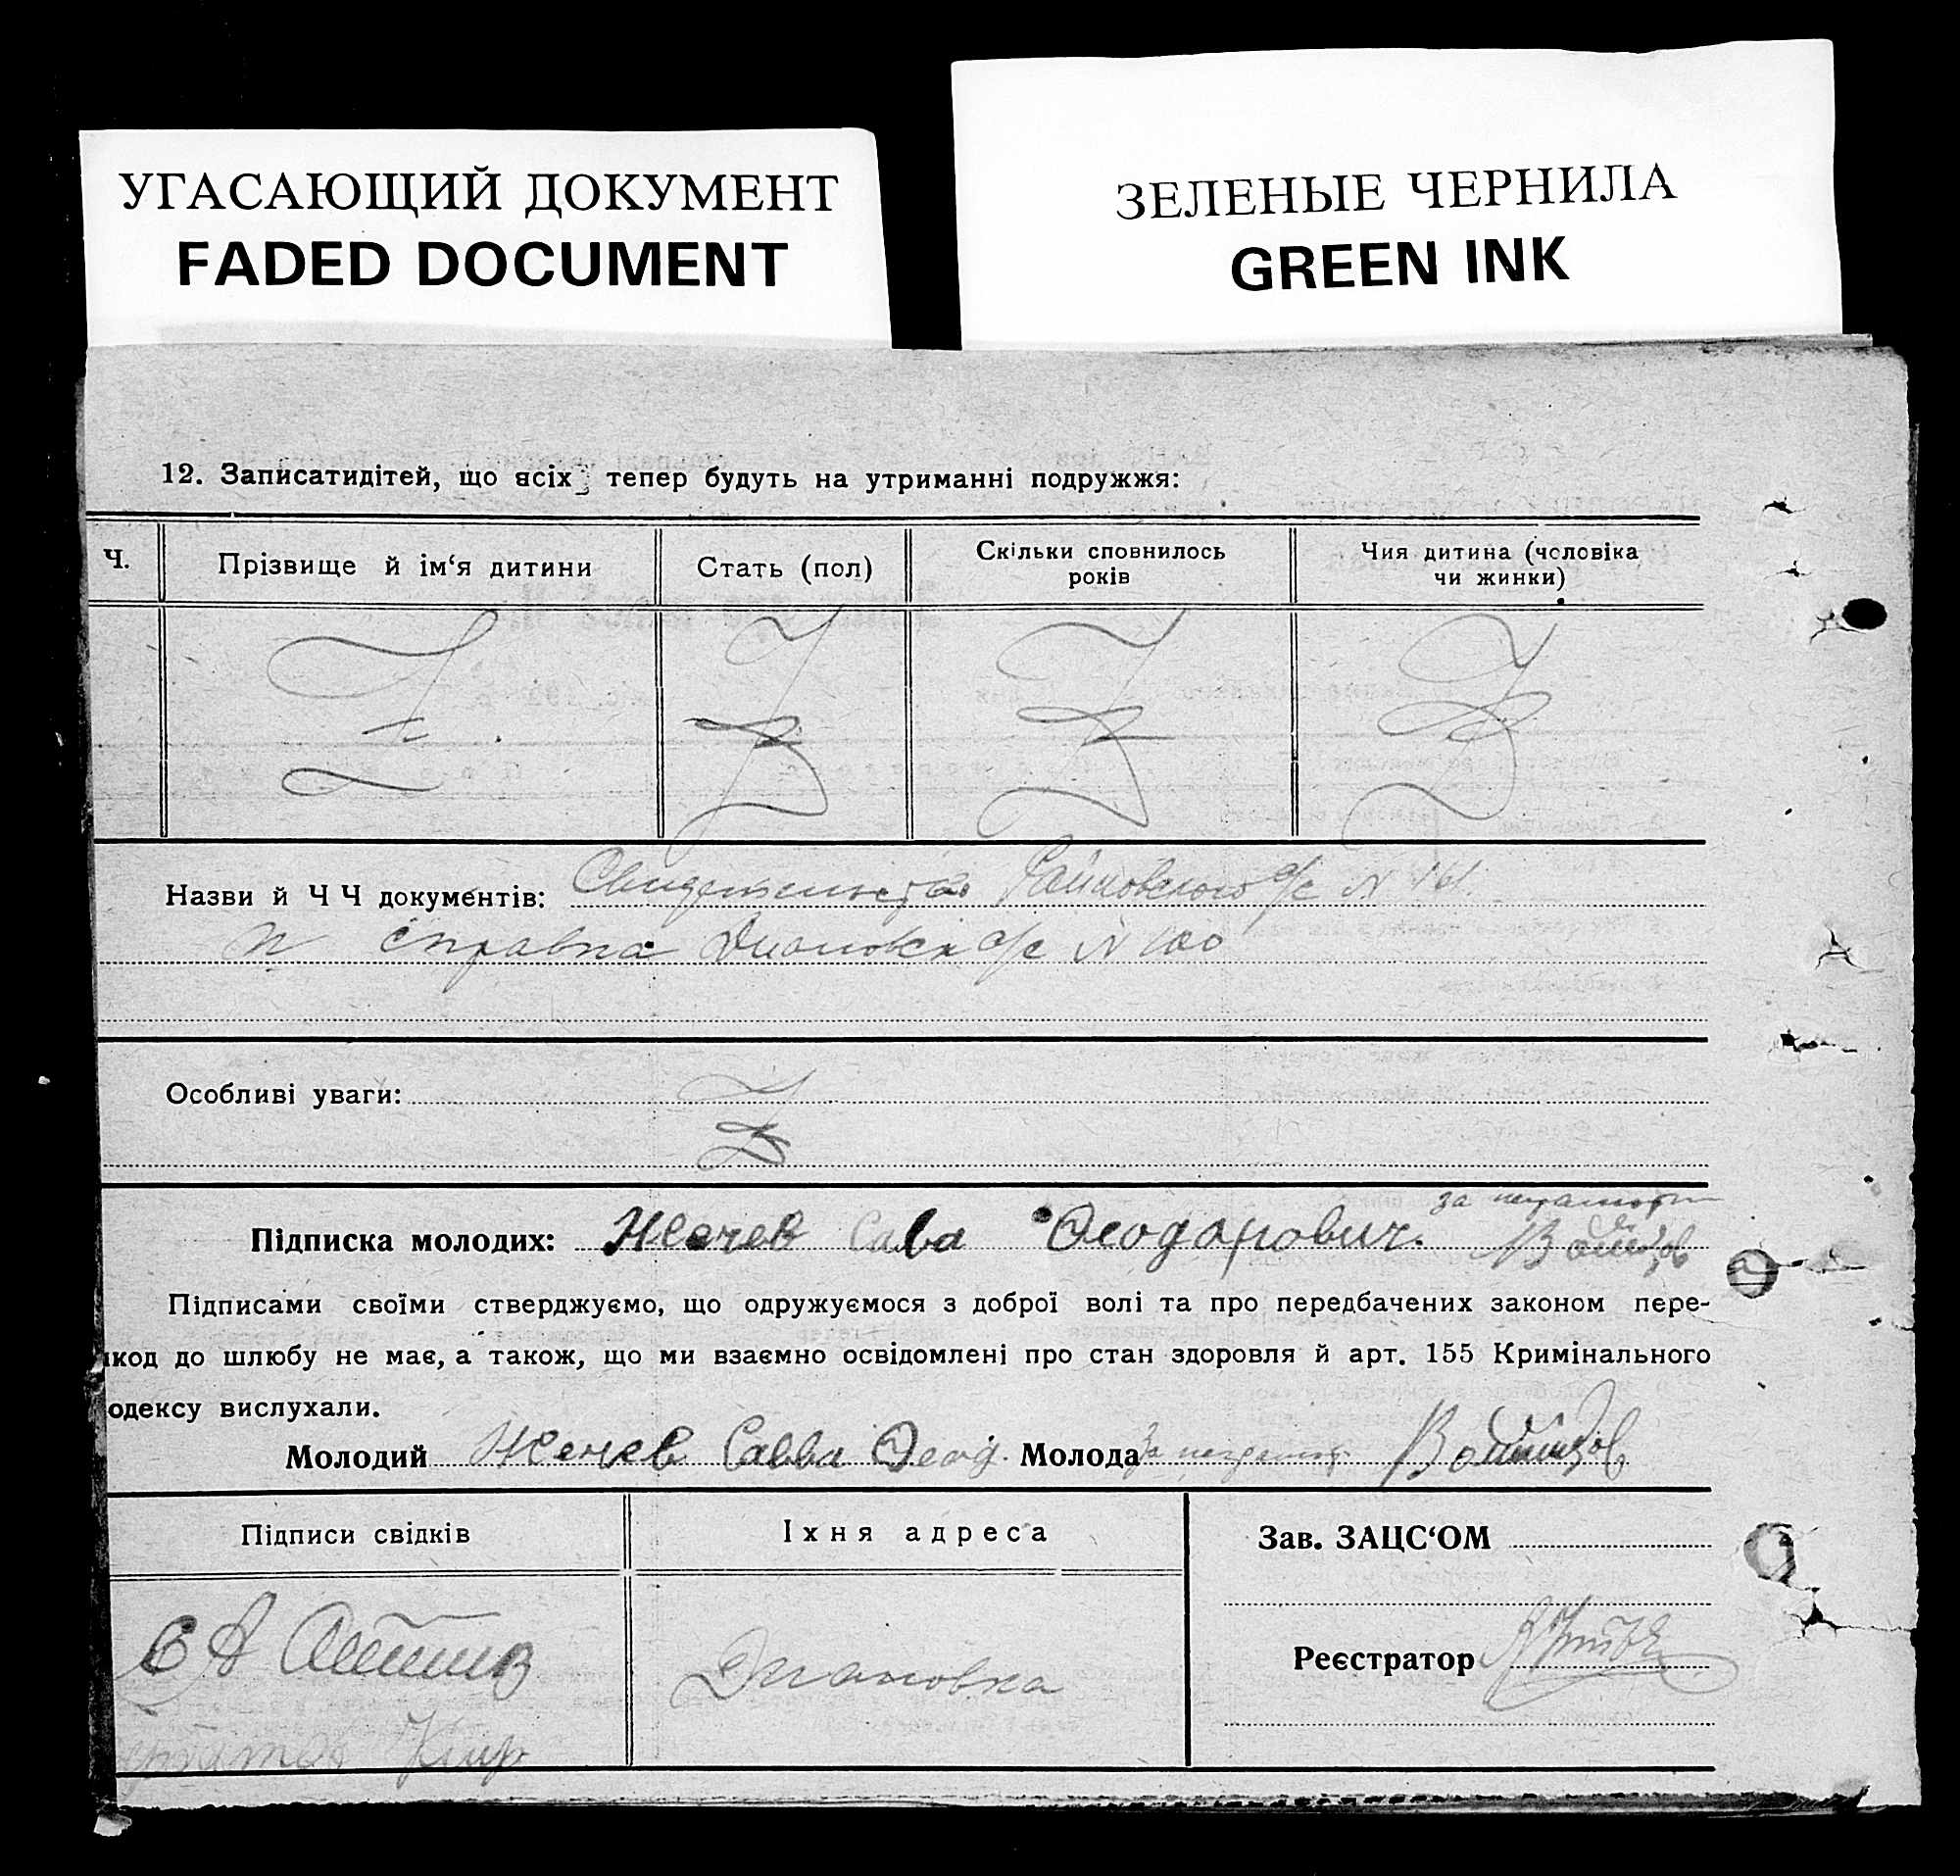 УГАСАЮЩИЙ ДОКУМЕНТ
FADED DOCUMENT
ЗЕЛЕНЫЕ ЧЕРНИЛА
GREEN INK
12. Записатидітей, що всіх тепер будуть на утриманні подружжя:
Ч. Прізвище й ім‘я дитини Стать (пол) Скільки сповнилось років Чия дитина (чоловіка чи жинки)
Назви й Ч Ч документів: с/с N 161
и справка с/с N 100
Особливі уваги:
за неграмотн
Підписка молодих: Жечев Сава Феодорович.
Підписами своїми стверджуємо, що одружуємося з доброї волі та про передбачених законом пере-
шкод до шлюбу не має, а також, що ми взаємно освідомлені про стан здоровля й арт. 155 Кримінального
одексу вислухали.
Молодий Жечев Савва Феод. Молода За неграмот.
Підписи свідків Їхня адреса Зав. ЗАЦС‘ОМ
Диановка
Реєстратор